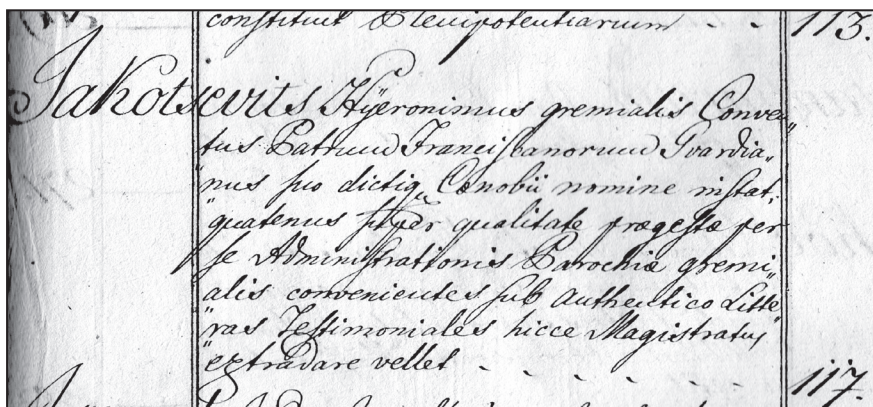 constituit Plenipotentiarium - - 113.
Jakotsevits Hÿeronimus gremialis Conven„
„tus Patrum Franciscanorum Gvardia„
„nus suo dictiq Cœnobii nomine instat,
quatenus qualitate prægestæ per
se Administrationis Parochiæ gremi„
„alis convenientes sub Authentico Litte„
„ras Testimoniales hicce Magistratus
extradare vellet - - - - - 117.